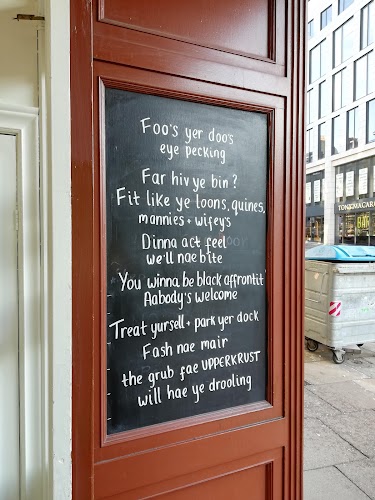 Foo's yer doo's
eye pecking
Far hiv ye bin?
Fit like ye loons, quines,
mannies + wifey's
Dinna act feel
we'll nae bite
You winna be black affrontit
Aabody's welcome
Treat yursell + park yer dock
Fash nae mair
the grub fae UPPERKRUST
will hae ye drooling
TONY MACARO
BAR